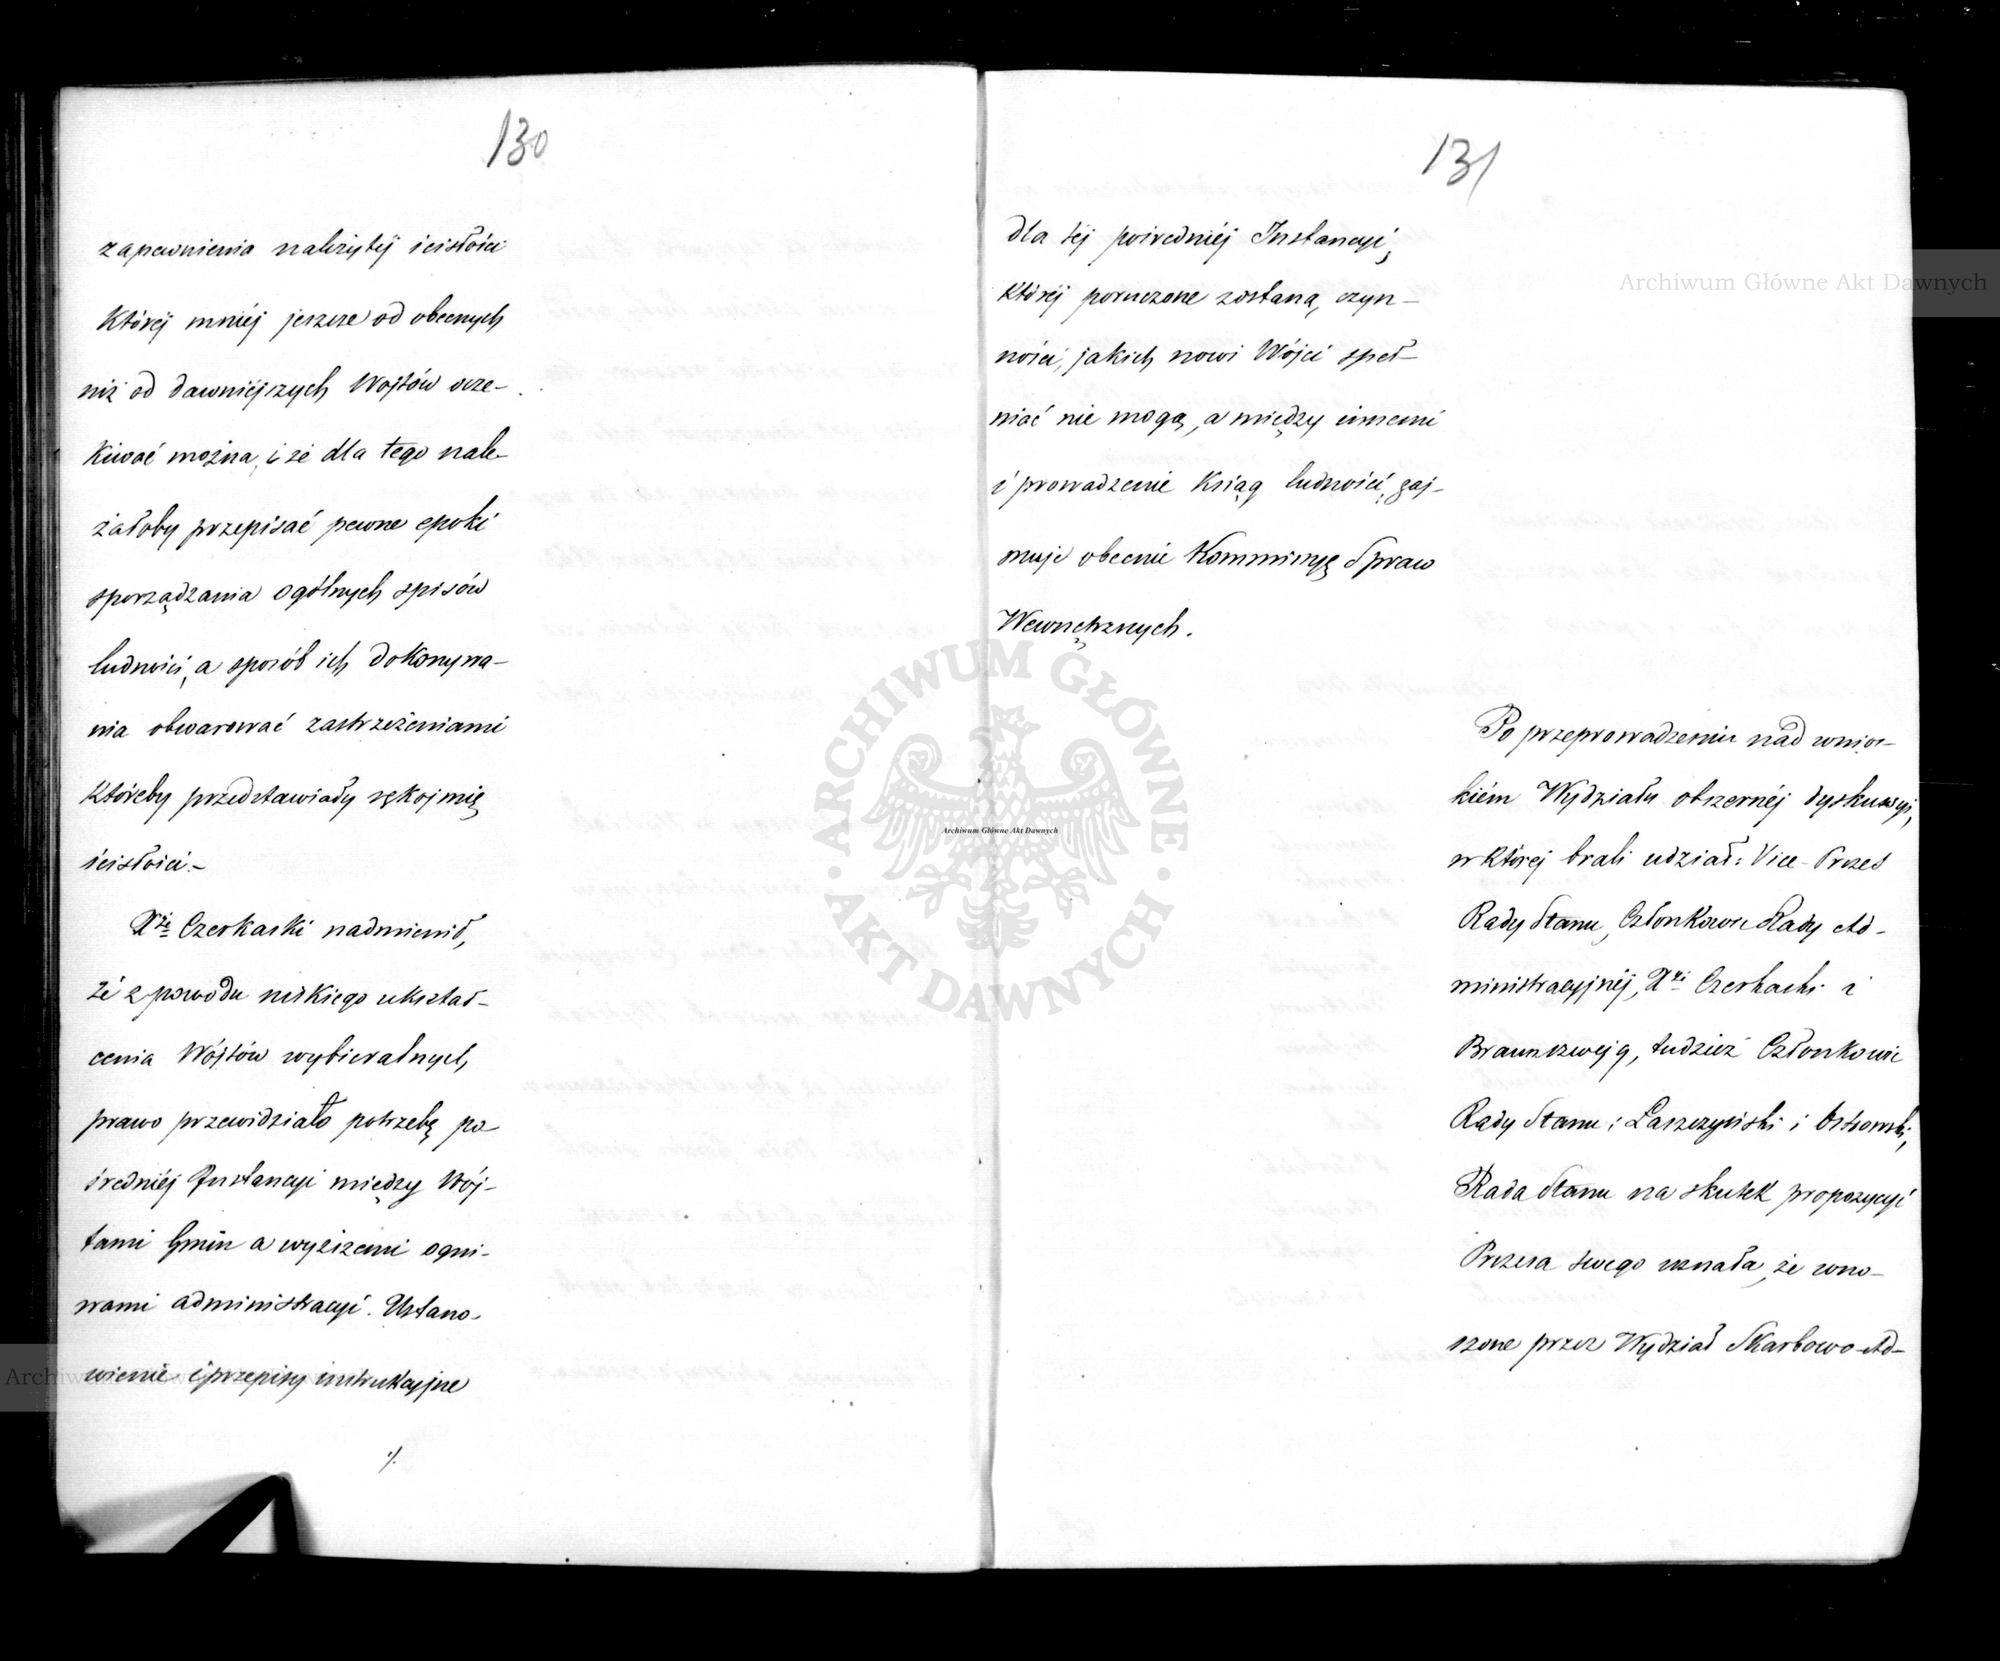 130
zapewnienia należytéj ścisłości
którėj mniéj jeszcze od obecnych
niż od dawniéjszych Wójtów ocze-
kiwać można, i że dla tego nale-
żałoby przepisać pewne epoki
sporządzania ogólnych spisów
ludności, a sposób ich dokonywa-
nia obwarować zastrzeżeniami
któreby przedstawiały rękojmię
ścisłości.-
Xże Czerkaski nadmienił,
że z powodu niskiego ukształ-
cenia Wójtów wybieralnych,
prawo przewidziało potrzebę po-
średniéj Instancyi między Wój-
tami Gmin a wyższemi ogni-
wami administracyi. Ustano-
wienie i przepisy instrukcyjne
./.
131
dla téj pośredniéj Instancyi,
któréj poruczone zostaną, czyn-
ności, jakich nowi Wójci speł-
niać nie mogą, a między innemi
i prowadzenie Ksiąg ludności, zaj-
muje obecnie Kommissyę Spraw
Wewnętrznych.
Po przeprowadzeniu nad wnios-
kiém Wydziału obszernéj dyskussyi,
w któréj brali udział: Vice-Prezes
Rady Stanu, Członkowie Rady Ad-
ministracyjnéj, Xże Czerkaski i
Braunszwejg, tudzież Członkowie
Rady Stanu: Łaszczyński i Ostrowski,
Rada Stanu na skutek propozycyi
Prezesa swego uznała, że wno-
szone przez Wydział Skarbowo-Ad-
Archiwum Główne Akt Dawnych
ARCHIWUM GŁÓWNE
AKT DAWNYCH
Archiwum Główne Akt Dawnych